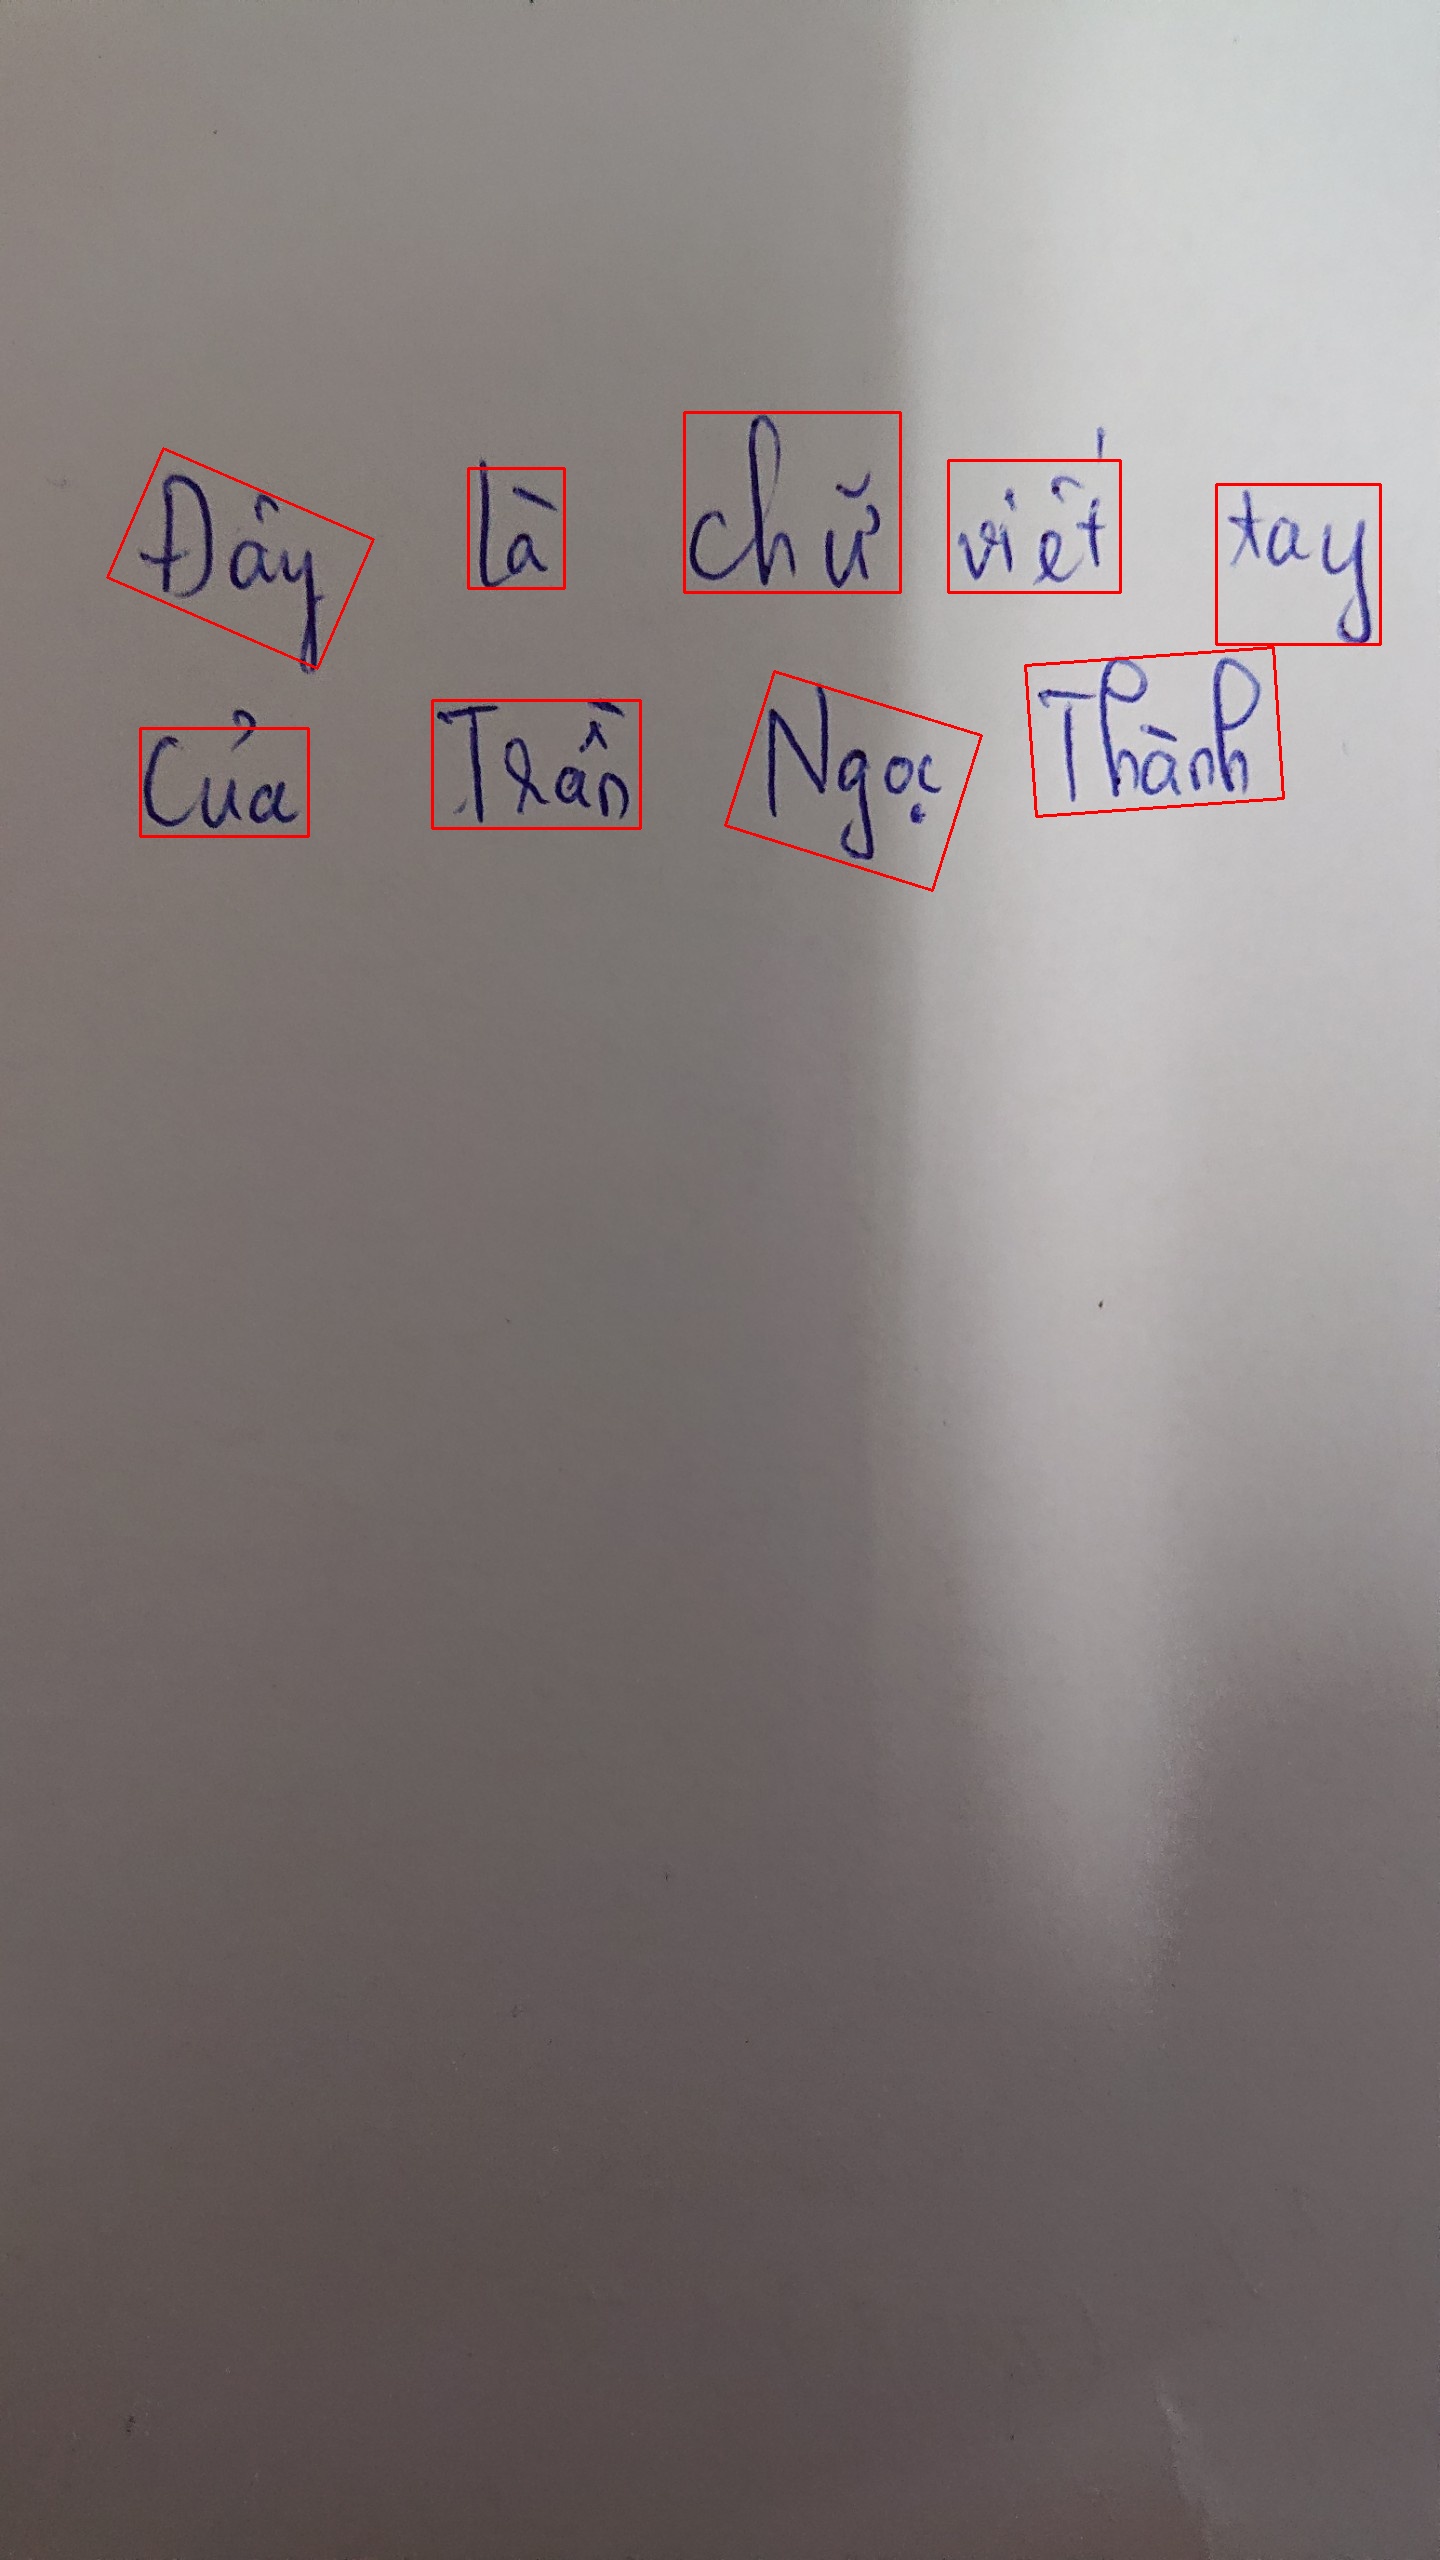 Đây là chữ viết tay
Của Trần Ngọc Thành